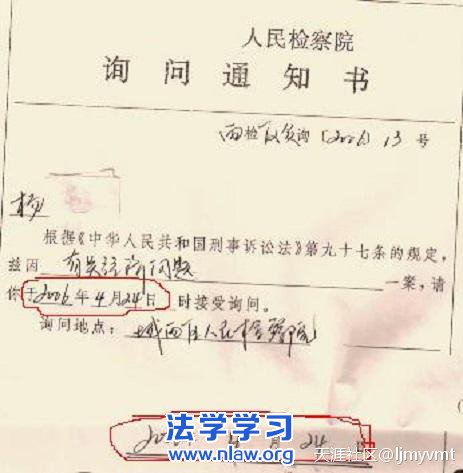 人民检察院
询问通知书
西检 询〔2006〕13号
杨
根据《中华人民共和国刑事诉讼法》第九十七条的规定，
兹因 有关 问题 一案，请
你于2006年4月24日 时接受询问。
询问地点：城西区人民检察院
法学学习
www.nlaw.org
4月24日
天涯社区@ljmyvmt